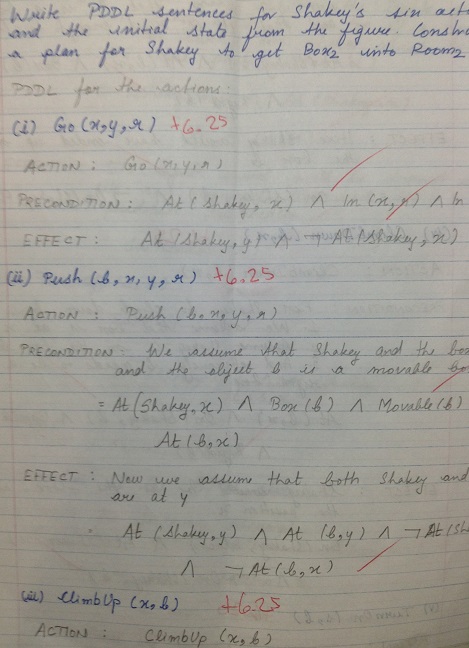 Write PDDL sentences for Shakey's six act
and the initial state from the figure. Constr
a plan for Shakey to get Box2 into Room2
PDDL for the actions:
(i) Go (x, y, r) +6.25
ACTION : Go (x, y, r)
PRECONDITION : At (Shakey, x) ∧ In (x, r) ∧ In
EFFECT : At (Shakey, y) ∧ ¬ At (Shakey, x)
(ii) Push (b, x, y, r) +6.25
ACTION : Push (b, x, y, r)
PRECONDITION : We assume that Shakey and the box
and the object b is a movable bo
= At (Shakey, x) ∧ Box (b) ∧ Movable (b)
At (b, x)
EFFECT : Now we assume that both Shakey and
are at y
At (Shakey, y) ∧ At (b, y) ∧ ¬ At (Sh
∧ ¬ At (b, x)
(iii) ClimbUp (x, b) +6.25
ACTION : ClimbUp (x, b)